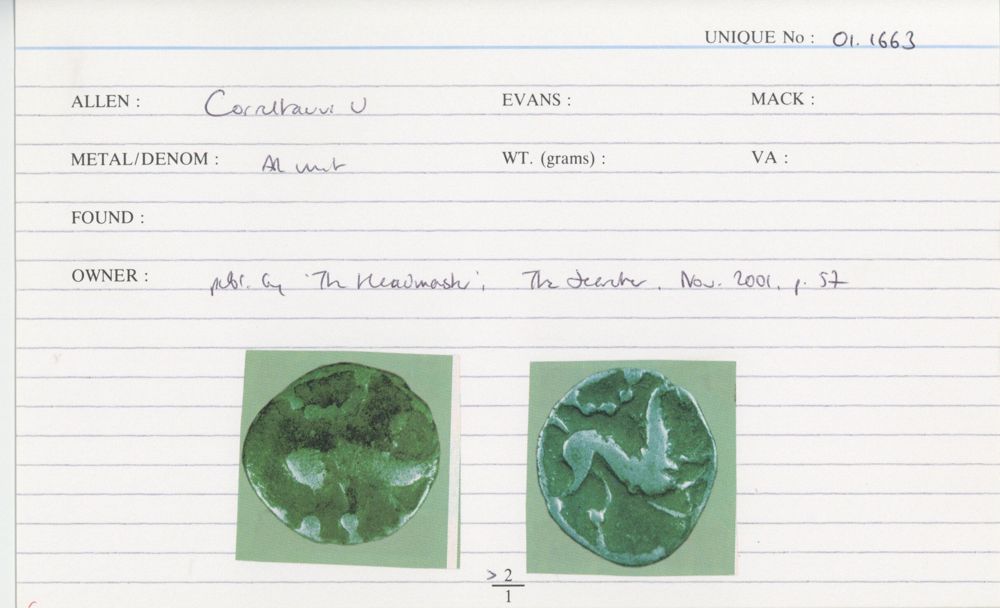 UNIQUE No : 01.1663
ALLEN : Corieltauvi U EVANS : MACK :
METAL/DENOM : AR unit WT. (grams) : VA :
FOUND :
OWNER : publ. by 'The Headmaster', The Searcher, Nov. 2001, p. 57
> 2
1